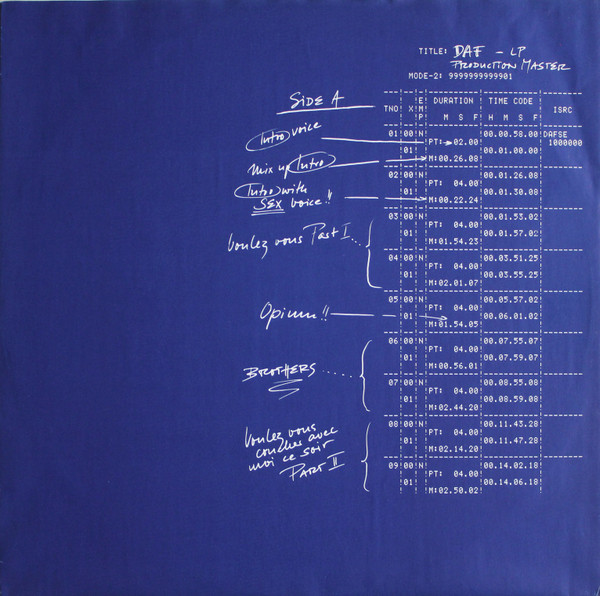 TITLE: DAF - LP
PRODUCTION MASTER
MODE-2: 9999999999901
SIDE A
TNO X EMP DURATION TIME CODE ISRC
M S F H M S F
Intro voice
01 00 N 00.00.58.00 DAFSE
PT: 02.00 1000000
01 00.01.00.00
M:00.26.08
mix up Intro
02 00 N 00.01.26.08
PT: 04.00
01 00.01.30.08
M:00.22.24
Intro with
SEX voice!!
03 00 N 00.01.53.02
PT: 04.00
01 00.01.57.02
M:01.54.23
Voulez vous Part I
04 00 N 00.03.51.25
PT: 04.00
01 00.03.55.25
M:02.01.07
05 00 N 00.05.57.02
PT: 04.00
01 00.06.01.02
M:01.54.05
Opium!!
06 00 N 00.07.55.07
PT: 04.00
01 00.07.59.07
M:00.56.01
BROTHERS
07 00 N 00.08.55.08
PT: 04.00
01 00.08.59.08
M:02.44.20
08 00 N 00.11.43.28
PT: 04.00
01 00.11.47.28
M:02.14.20
Voulez vous
coucher avec
moi ce soir
PART II
09 00 N 00.14.02.18
PT: 04.00
01 00.14.06.18
M:02.50.02